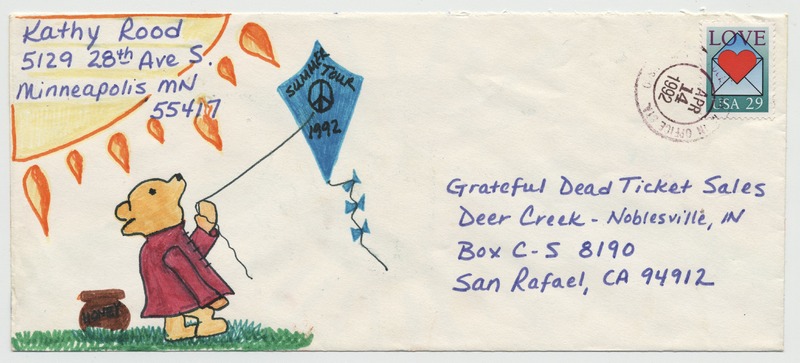 Kathy Rood
5129 28th Ave S.
Minneapolis MN
55417
SUMMER TOUR
1992
LOVE
USA 29
APR
14
1992
Grateful Dead Ticket Sales
Deer Creek - Noblesville, IN
Box C-S 8190
San Rafael, CA 94912
HONEY